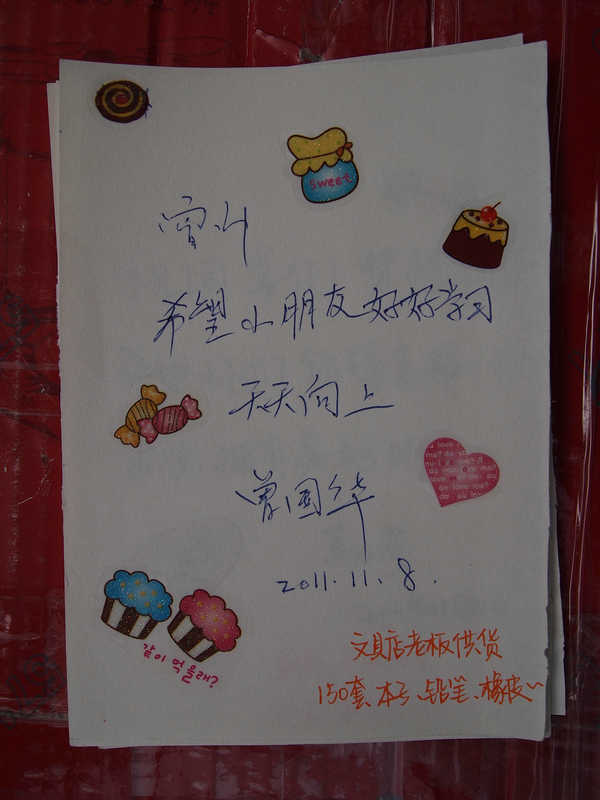 sweet
希望小朋友好好学习
天天向上
曾国华
2011.11.8.
같이 먹을래?
文具店老板供货
150套、本子、铅笔、橡皮